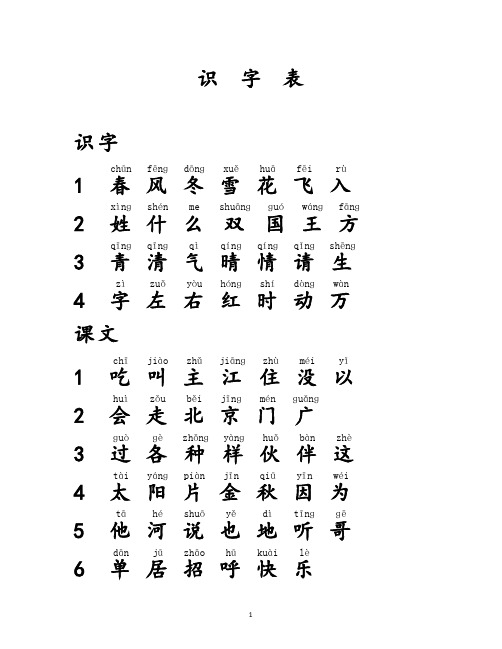 识 字 表
识字
chūn fēng dōng xuě huā fēi rù
1 春 风 冬 雪 花 飞 入
xìng shén me shuāng guó wáng fāng
2 姓 什 么 双 国 王 方
qīng qīng qì qíng qíng qǐng shēng
3 青 清 气 晴 情 请 生
zì zuǒ yòu hóng shí dòng wàn
4 字 左 右 红 时 动 万
课文
chī jiào zhǔ jiāng zhù méi yǐ
1 吃 叫 主 江 住 没 以
huì zǒu běi jīng mén guǎng
2 会 走 北 京 门 广
guò gè zhǒng yàng huǒ bàn zhè
3 过 各 种 样 伙 伴 这
tài yáng piàn jīn qiū yīn wéi
4 太 阳 片 金 秋 因 为
tā hé shuō yě dì tīng gē
5 他 河 说 也 地 听 哥
dān jū zhāo hū kuài lè
6 单 居 招 呼 快 乐
1